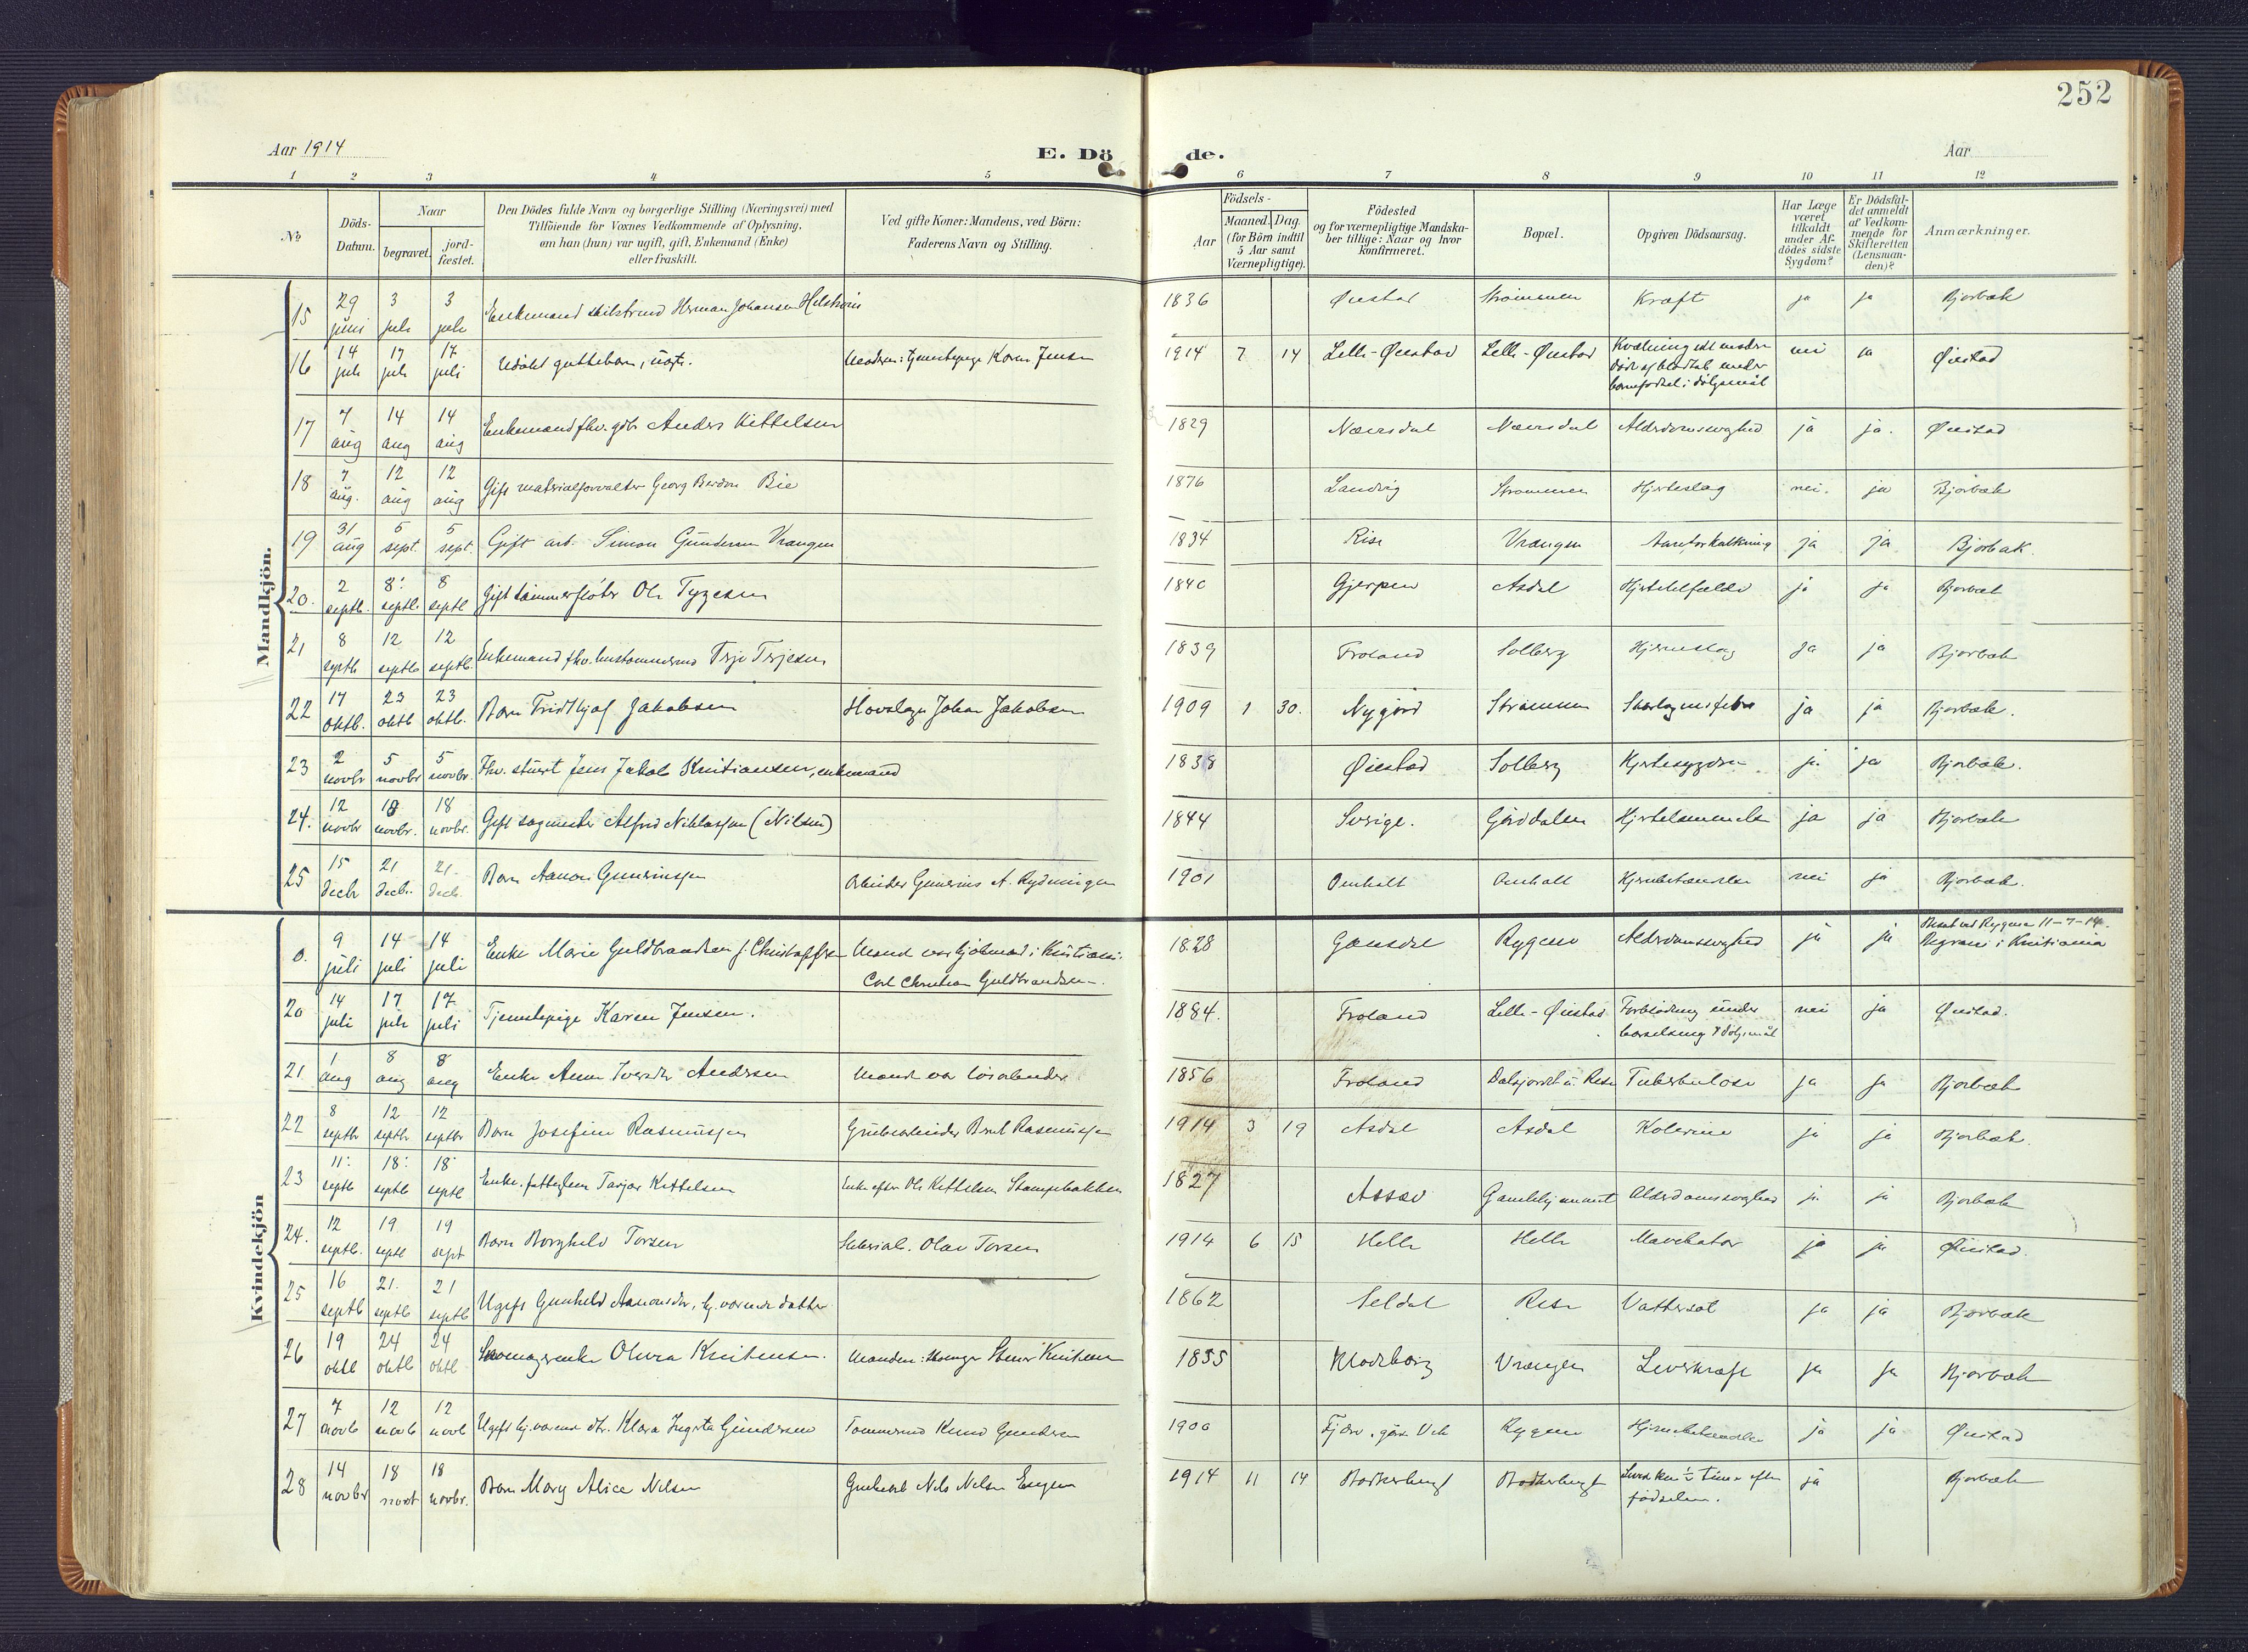 252
Aar 1914
E. Dö de.
Aar
1 2 3 4 5 6 7 8 9 10 11 12
No
Döds-Datum.
Naar
begravet.
jordfæstet.
Den Dödes fulde Navn og borgerlige Stilling (Næringsvei) med
Tilföiende for Voxnes Vedkommende af Oplysning,
om han (hun) var ugift, gift, Enkemand (Enke)
eller fraskilt.
Ved gifte Koner: Mandens, ved Börn:
Faderens Navn og Stilling.
Födsels-
Aar
Maaned. Dag.
(for Börn indtil
5 Aar samt
Værnepligtige).
Födested
og for værnepligtige Mandskaber tillige: Naar og hvor
konfirmeret.
Bopæl.
Opgiven Dödsaarsag.
Har Læge
været
tilkaldt
under Afdödes sidste
Sygdom?
Er Dödsfaldet anmeldt
af Vedkommende for
Skifteretten
(Lensmanden)?
Anmærkninger.
Mandkjön.
15 29 juni 3 juli 3 juli Enkemand Herman Johansen 1836 Øiestad Strømmen Kræft ja ja Bjorbæk
16 14 juli 17 juli 17 juli Udöbt guttebarn, uægte. Moderen: tjenestepige Karen Jensen 1914 7 14 Lille-Øiestad Lille-Øiestad Kvælning idet moderen
döde af blodtab under
barnefödsel i dölgsmål nei ja Øiestad
17 7 aug 14 aug 14 aug Enkemand fhv. gdr. Anders Kittelsen 1829 Næversdal Næversdal Alderdomssvaghed ja ja. Øiestad
18 7 aug. 12 aug 12 aug Gift materialforvalter Georg Bie 1876 Landvig Strømmen Hjerteslag nei. ja Bjorbæk
19 31 aug 5 sept. 5 sept. Gift arb. Simon Gundersen Vrangen 1834 Rise Vrangen Aareforkalkning ja ja Bjorbæk.
20. 2 septb. 8 septb. 8 septb Gift tømmerfløter Ole Tygesen 1840 Gjerpen Asdal Hjertetilfælde ja ja Bjorbæk
21 8 septb 12 septb 12 septb. Enkemand fhv. Terje Terjesen 1839 Froland Solberg Hjerneslag ja ja Bjorbæk
22 17 oktb. 23 oktb 23 oktb. Barn Fridthjof Jakobsen Hovslager Johan Jakobsen 1909 1 30. Nygård Strømmen Skarlagensfeber ja ja Bjorbæk.
23 2 novbr 5 novbr 5 novbr. Fhv. stuert Jens Jakob Kristiansen, enkemand 1838 Øiestad Solberg Hjertesygdom ja ja Bjorbæk.
24. 12 novbr 18 novbr. 18 novbr. Gift sagmester Alfred Niklassen (Nilsen) 1844 Sverige. Gjerddalen Hjertelammelse ja ja Bjorbæk
25 15 decb 21 decb. 21. decb. Barn Aanon Gunerinssen Arbeider Gunerius A. Rydningen 1901 Omholt Omholt Hjernebetændelse nei ja Bjorbæk.
Kvindekjön
9 juli 14 juli 14 juli Enke Marie Guldbrandsen f. Christoffersen Mand var i Kristiania:
Carl Christian Guldbrandsen. 1828 Gausdal Rygene Alderdomssvaghed ja ja Rygene 11-7-14.
Begravet i Kristiania
20 14 juli 17 juli 17 juli Tjenestepige Karen Jensen. 1884. Froland Lille-Øiestad. Forblödning under
barselseng i dölgsmål nei ja Øiestad.
21 1 aug 8 aug 8 aug Enke Anne Andersen Mand var løsarbeider 1856 Froland Rise Tuberkulose ja ja Bjorbæk
22 8 septbr 12 septbr 12 septbr Barn Josefine Rasmussen Grubearbeider Rasmussen 1914 3 19 Asdal Asdal Kolerine ja ja Bjorbæk.
23 11. septb 18. septb 18 septb Enke. fattiglem Tarjer Kittelsen Enke efter Ole Kittelsen Stampebakken 1827 Gamlehjemmet Alderdomssvaghed ja ja Bjorbæk
24. 12 septb. 19 septb 19 sept Barn Borghild Torsen Olav Torsen 1914 6 15 Helle Helle Mavekatar ja ja Øiestad.
25 16 septb 21. septb 21 septb Ugift Gunhild Aanonsdtr, hj.værende datter 1862 Seldal Rise Vattersot ja ja Bjorbæk
26 19 oktb 24 oktb 24 oktb Olivia Kristensen. Manden: 1855 Klodeborg Vrangen Leverkræft ja ja Bjorbæk
27 7 novb 12 novb 12 novb Ugift hj.værende dtr. Klara Gundersen Tømmermd Knud Gundersen 1900 Fjære Rygene Hjernebetændelse ja ja Øiestad
28 14 novbr 18 novb 18 novbr. Barn Mary Alice Nilsen Nils Nilsen 1914 11 14 Bødkerhagt Bødkerhagt Levet kun ½ time efter
födselen. ja Bjorbæk